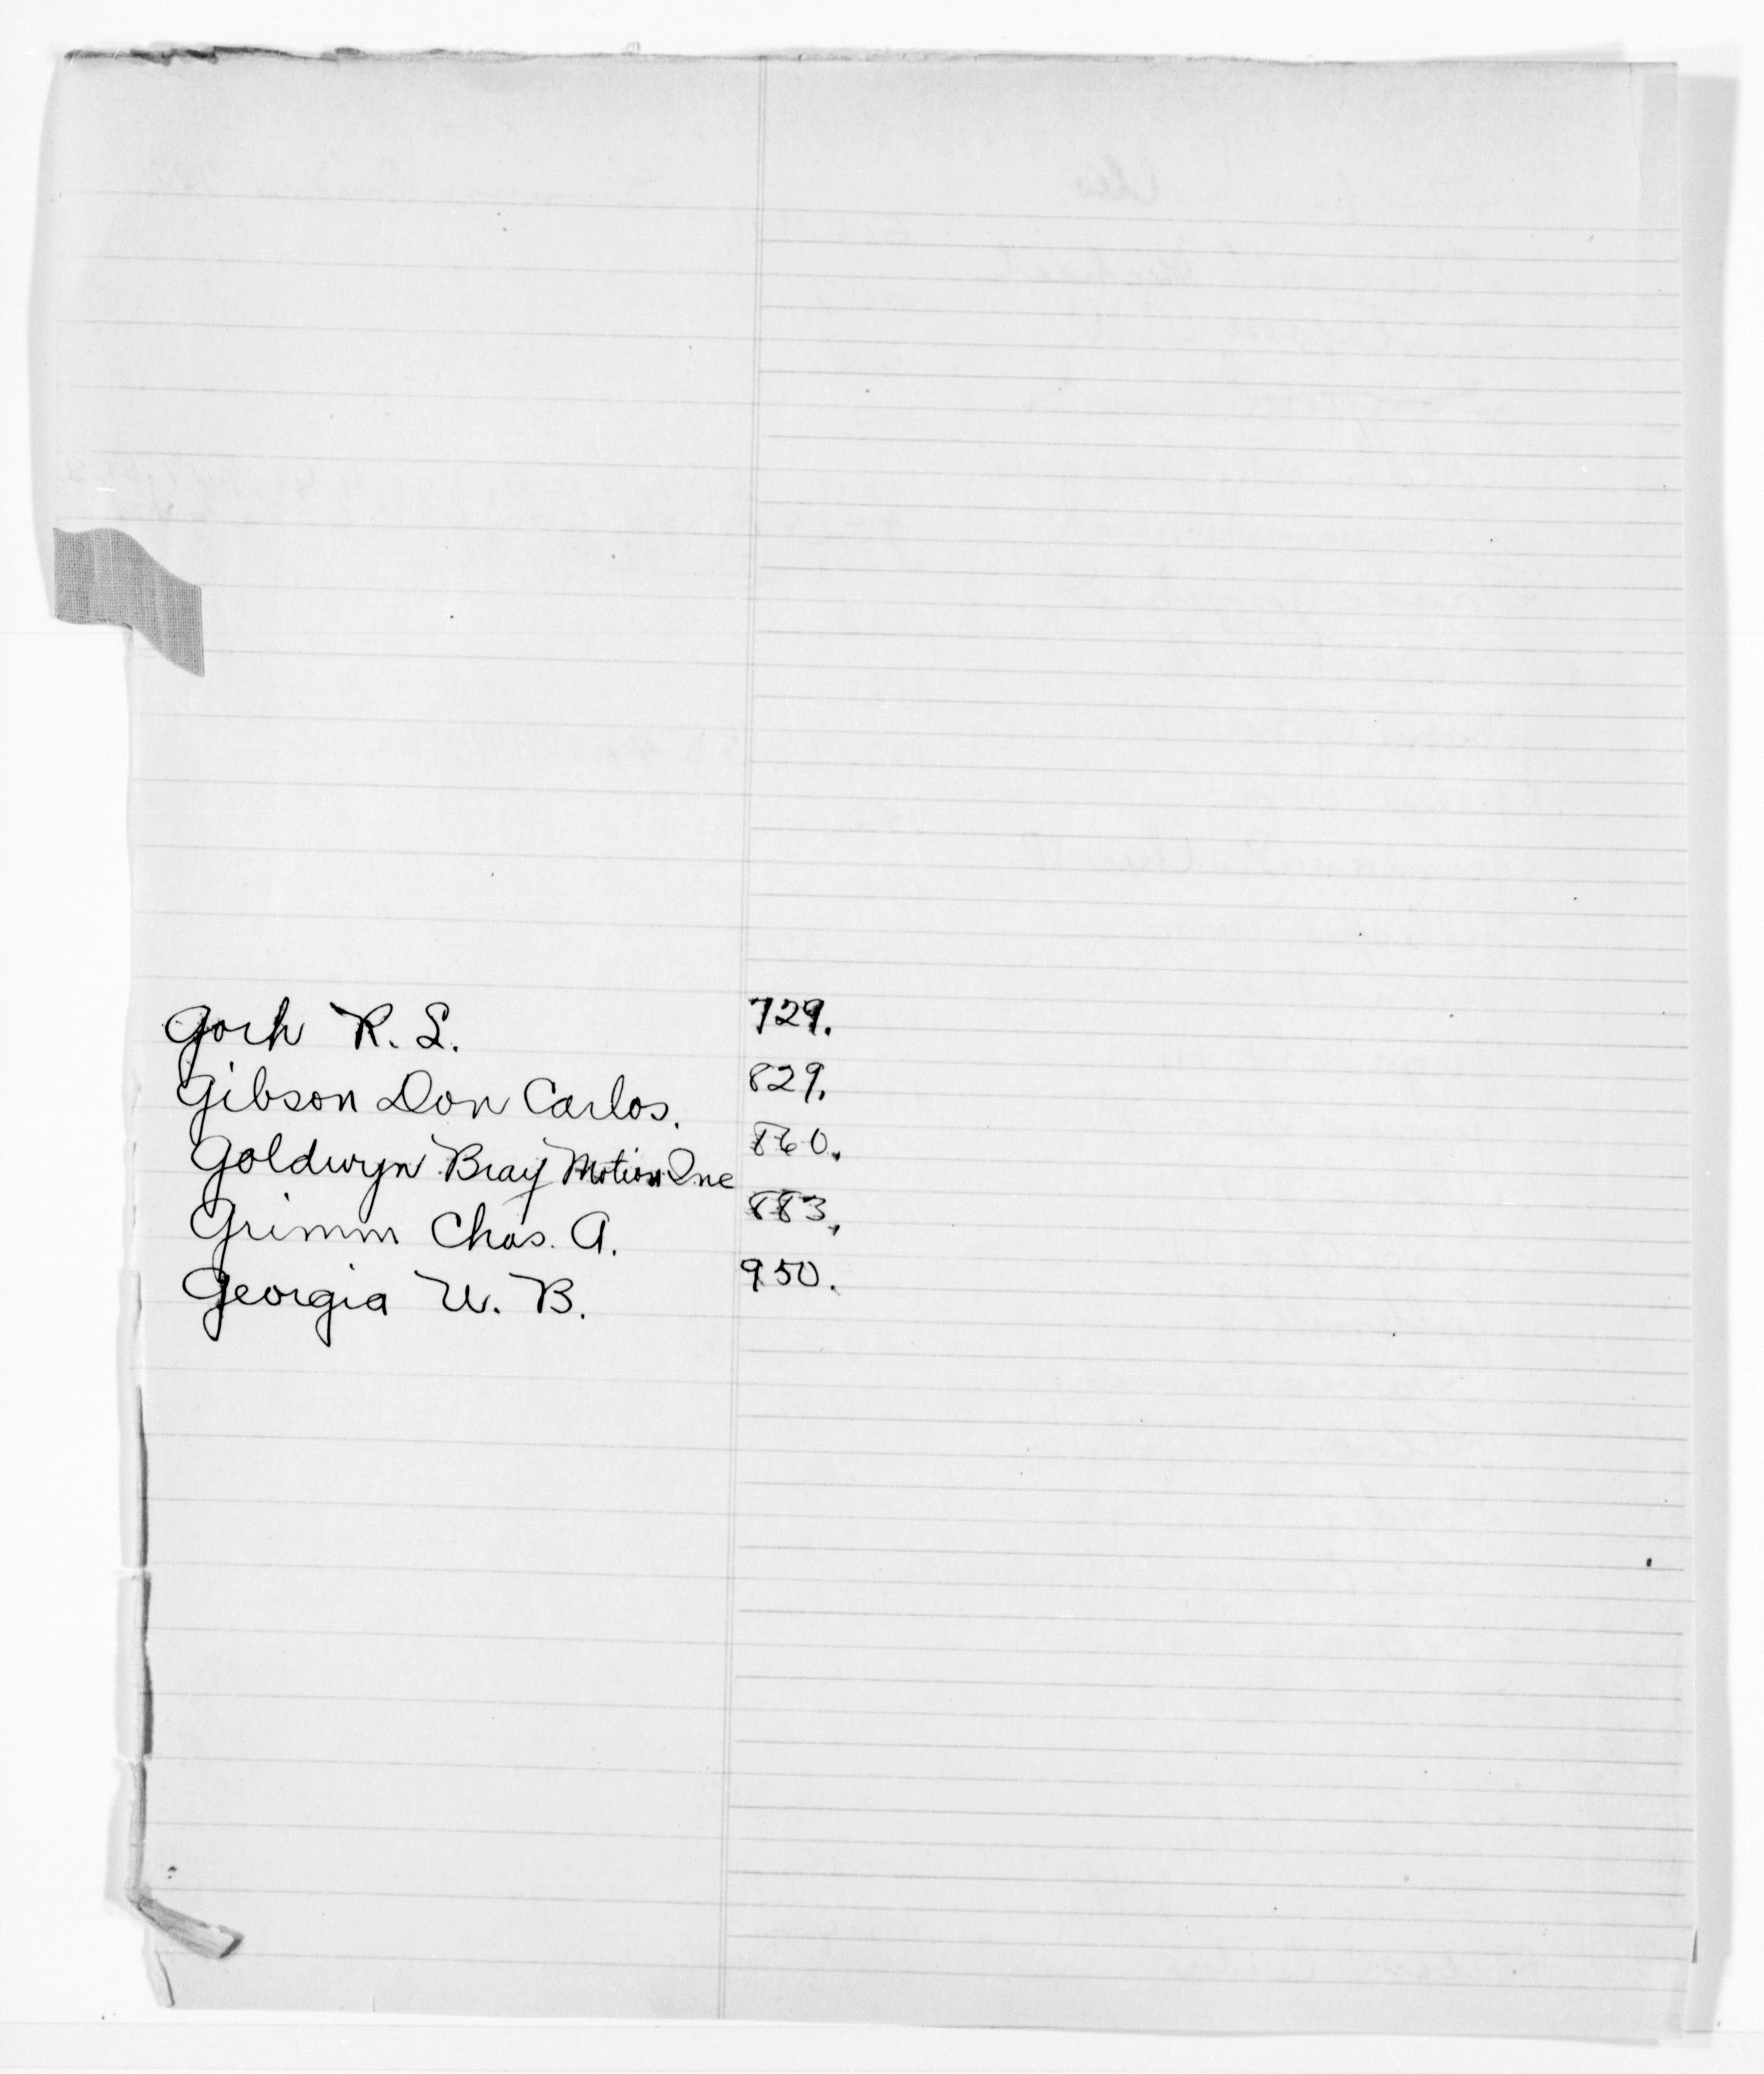 Goch R. L. 729.
Gibson Don Carlos. 829.
Goldwyn Bray Motion Inc 860.
Grimm Chas. A. 883.
Georgia W. B. 950.